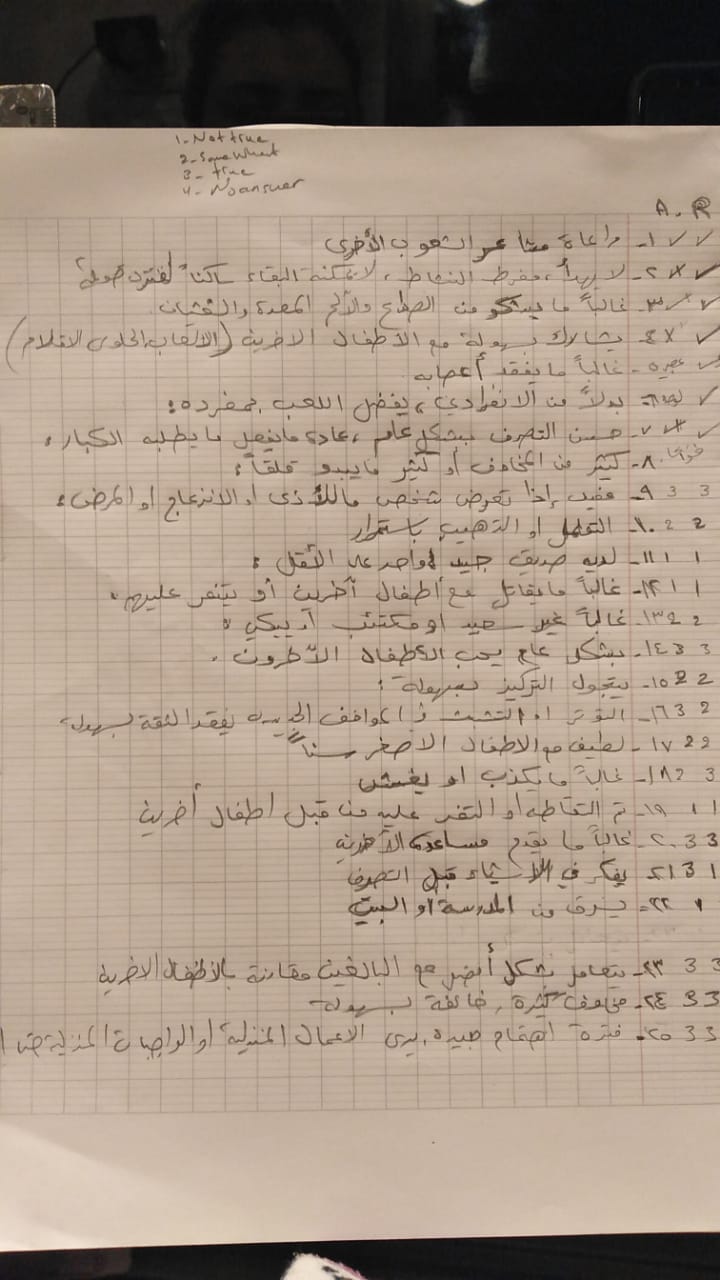 1- Not true
2- Somewhat
3- true
4- No answer
A. R
✓ ✓ ١- مراعاة مشاعر الشعوب الأخرى
✓ ٢- لا يهدأ، مفرط النشاط، لا يمكنه البقاء ساكناً لفترة طويلة
✓ ٣- غالباً ما يشكو من الصداع والألم المعدة والغثيان
✓ ٤- يشارك بسهولة مع الأطفال الاخرين (الالعاب الحلوى الاقلام)
✓ ٥- غالباً ما يفقد أعصابه
✓ ٦- بدلاً من الانفرادي، يفضل اللعب بمفرده:
✓ ٧- حسن التصرف بشكل عام، عادة ما يفعل ما يطلبه الكبار.
٨- كثير من المخاوف أو كثير ما يبدو قلقاً:
3 3 ٩- مفيد إذا تعرض شخص ما للأذى او الانزعاج او المرض:
2 2 ١٠- التململ او باستمرار
1 1 ١١- لديه صديق جيد واحد على الأقل:
1 1 ١٢- غالباً ما يقاتل مع أطفال آخرين أو يتنمر عليهم.
2 2 ١٣- غالباً غير سعيد او مكتئب او يبكي:
3 3 ١٤- بشكل عام يحب الاطفال الآخرون.
2 2 ١٥- التركيز بسهولة:
2 3 ١٦- التوتر او التشبث في المواقف الجديده يفقد الثقة بسهوله
2 2 ١٧- لطيف مع الاطفال الاصغر سناً
3 2 ١٨- غالباً ما يكذب او يغش
1 1 ١٩- تم التقاطه او التنمر عليه من قبل اطفال أخرين
3 3 ٢٠- غالباً ما يقدم مساعدة الأخرين
1 3 ٢١- يفكر في الأشياء قبل التصرف
1 ٢٢- يسرق من المدرسة او البيت
3 3 ٢٣- يتعامل بشكل أفضل مع البالغين مقارنة بالأطفال الاخرين
3 3 ٢٤- مخاوف كثيرة، خائفة بسهولة
3 3 ٢٥- فترة اهتمام جيدة، يرى الاعمال المنزلية او الواجبات المنزلية